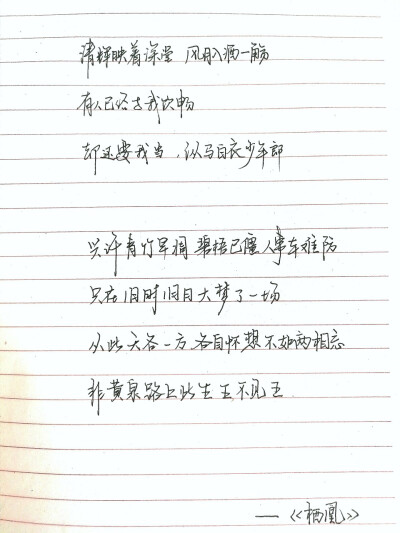 清辉映着深堂 风月入酒一觞
有人已经去我坎畅
却还要我当，纵马白衣少年郎
兴许青竹早凋 碧梧已僵 人事车难防
只在旧时旧日大梦了一场
从此天各一方 各自怀想 不如两相忘
非黄泉路上此生王不见王
——《栖凰》